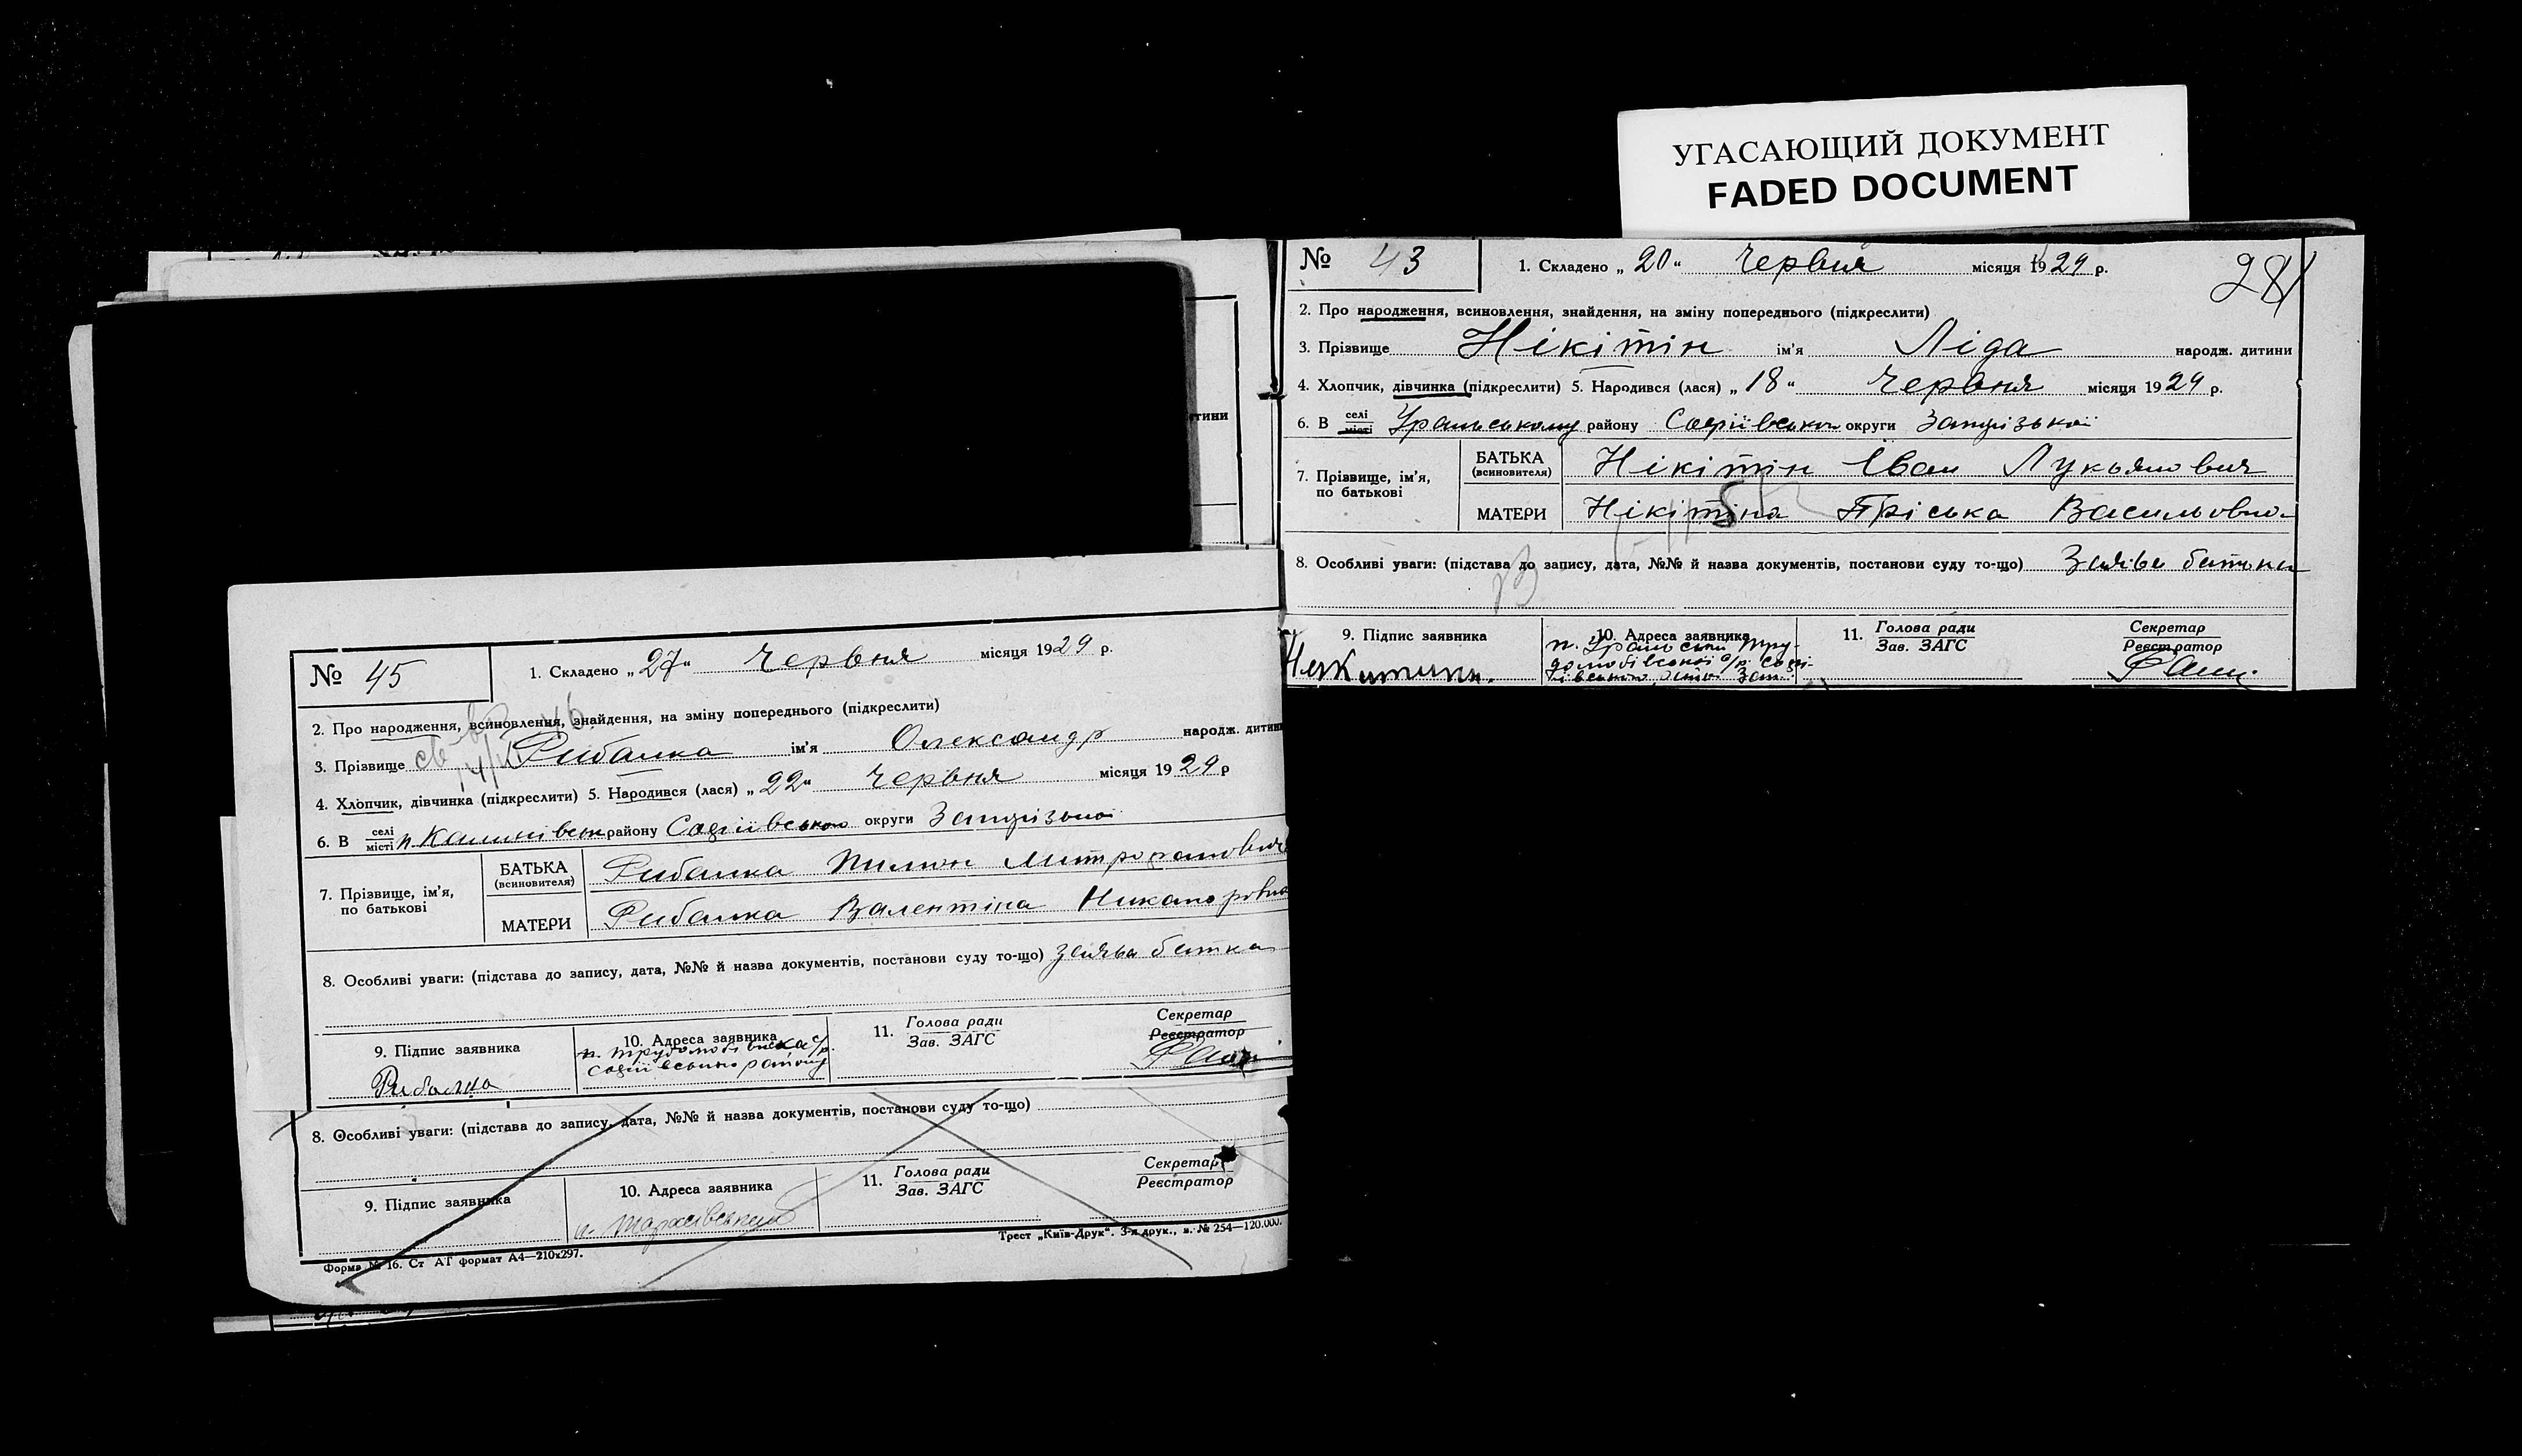 УГАСАЮЩИЙ ДОКУМЕНТ
FADED DOCUMENT
№ 43
1. Складено „ 20 “ Червня місяця 1929 р.
281
2. Про народження, всиновлення, знайдення, на зміну попереднього (підкреслити)
3. Прізвище Нікітін ім'я Ліда народж. дитини
4. Хлопчик, дівчинка (підкреслити) 5. Народився (лася) „ 18 “ Червня місяця 1929 р.
6. В селі місті Уральському району Софіївського округи Запорізької
7. Прізвище, ім'я, по батькові
БАТЬКА (всиновителя) Нікітін Іван Лукьянович
МАТЕРИ Нікітіна Пріська Васильовна
8. Особливі уваги: (підстава до запису, дата, №№ й назва документів, постанови суду то-що) Заява батька
9. Підпис заявника
10. Адреса заявника
п. Уральський Тру-
долюбівської с/р. Софі-
ївського
11. Голова ради
Зав. ЗАГС
Секретар
Реєстратор
тини
№ 45
1. Складено „ 27 “ Червня місяця 1929 р.
2. Про народження, всиновлення, знайдення, на зміну попереднього (підкреслити)
3. Прізвище Рибалка ім'я Олександр народж. дитини
4. Хлопчик, дівчинка (підкреслити) 5. Народився (лася) „ 22 “ Червня місяця 1929 р
6. В селі місті п. Калинівськ району Софіївського округи Запорізької
7. Прізвище, ім'я, по батькові
БАТЬКА (всиновителя) Рибалка Пилип Митрофанович
МАТЕРИ Рибалка Валентіна Никаноровна
8. Особливі уваги: (підстава до запису, дата, №№ й назва документів, постанови суду то-що) заява батка
9. Підпис заявника
Рибалка
10. Адреса заявника
п. Трудолюбівська с/р.
Софіївського району
11. Голова ради
Зав. ЗАГС
Секретар
Реєстратор
8. Особливі уваги: (підстава до запису, дата, №№ й назва документів, постанови суду то-що)
9. Підпис заявника
10. Адреса заявника
11. Голова ради
Зав. ЗАГС
Секретар
Реєстратор
Форма № 16. Ст АГ формат А4—210х297.
Трест „Київ-Друк“. 3-я друк., з. № 254—120.000.